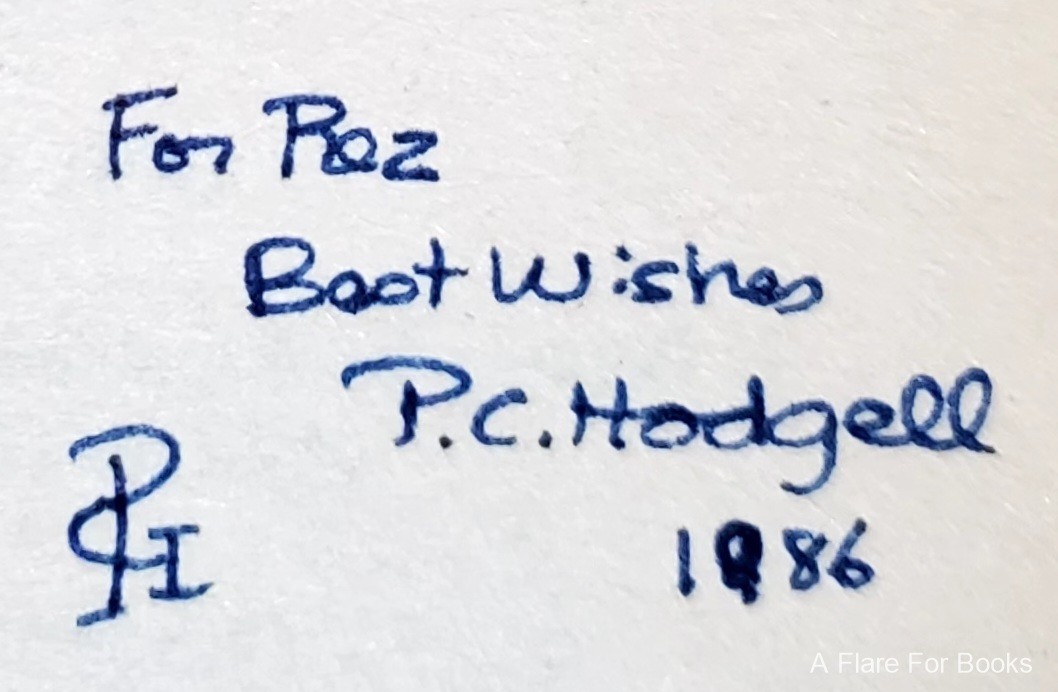 For Roz
Best Wishes
P.C. Hodgell
PCH
1986
A Flare For Books